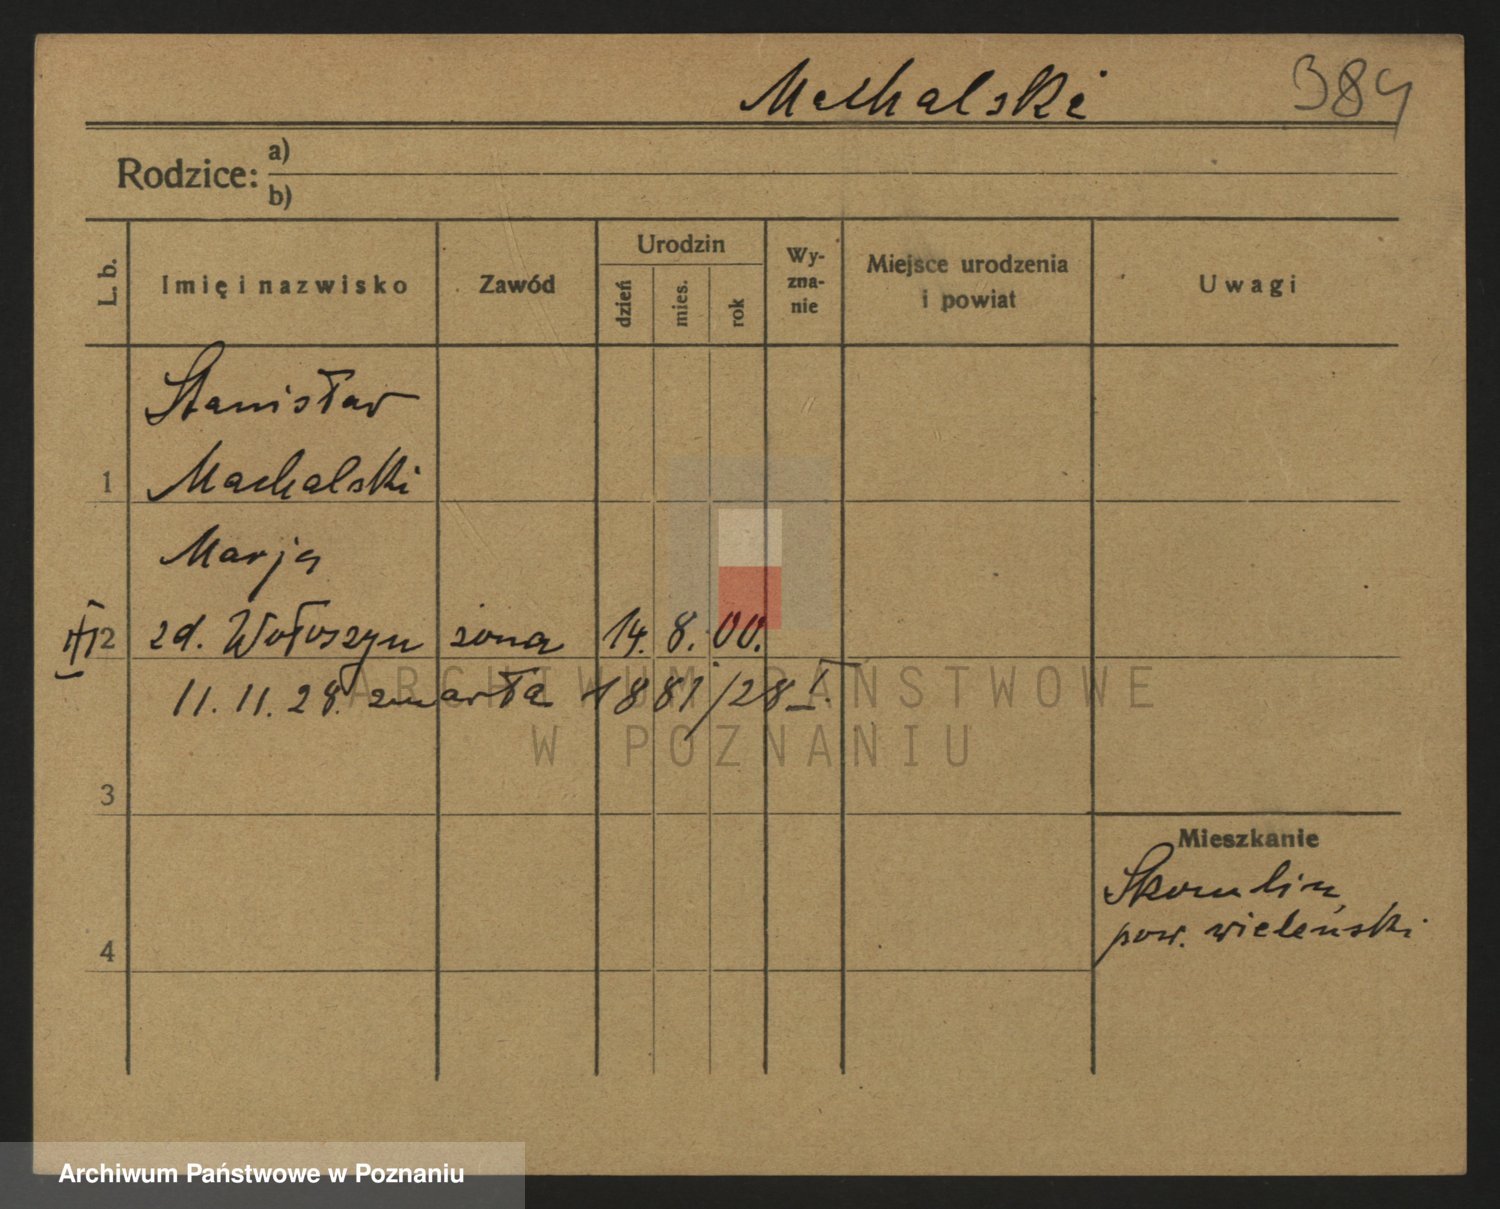 Machalski 384
Rodzice: a)
b)
L. b. Imię i nazwisko Zawód Urodzin dzień mies. rok Wy-zna-nie Miejsce urodzenia i powiat Uwagi
Stanisław
1 Machalski
Marja
2 zd. Wołoszyn żona 14. 8. 00.
11. 11. 28. zmarła 1881/28 I.
3
Mieszkanie
Skomlin,
pow. wieluński
4
ARCHIWUM PAŃSTWOWE
W POZNANIU
Archiwum Państwowe w Poznaniu